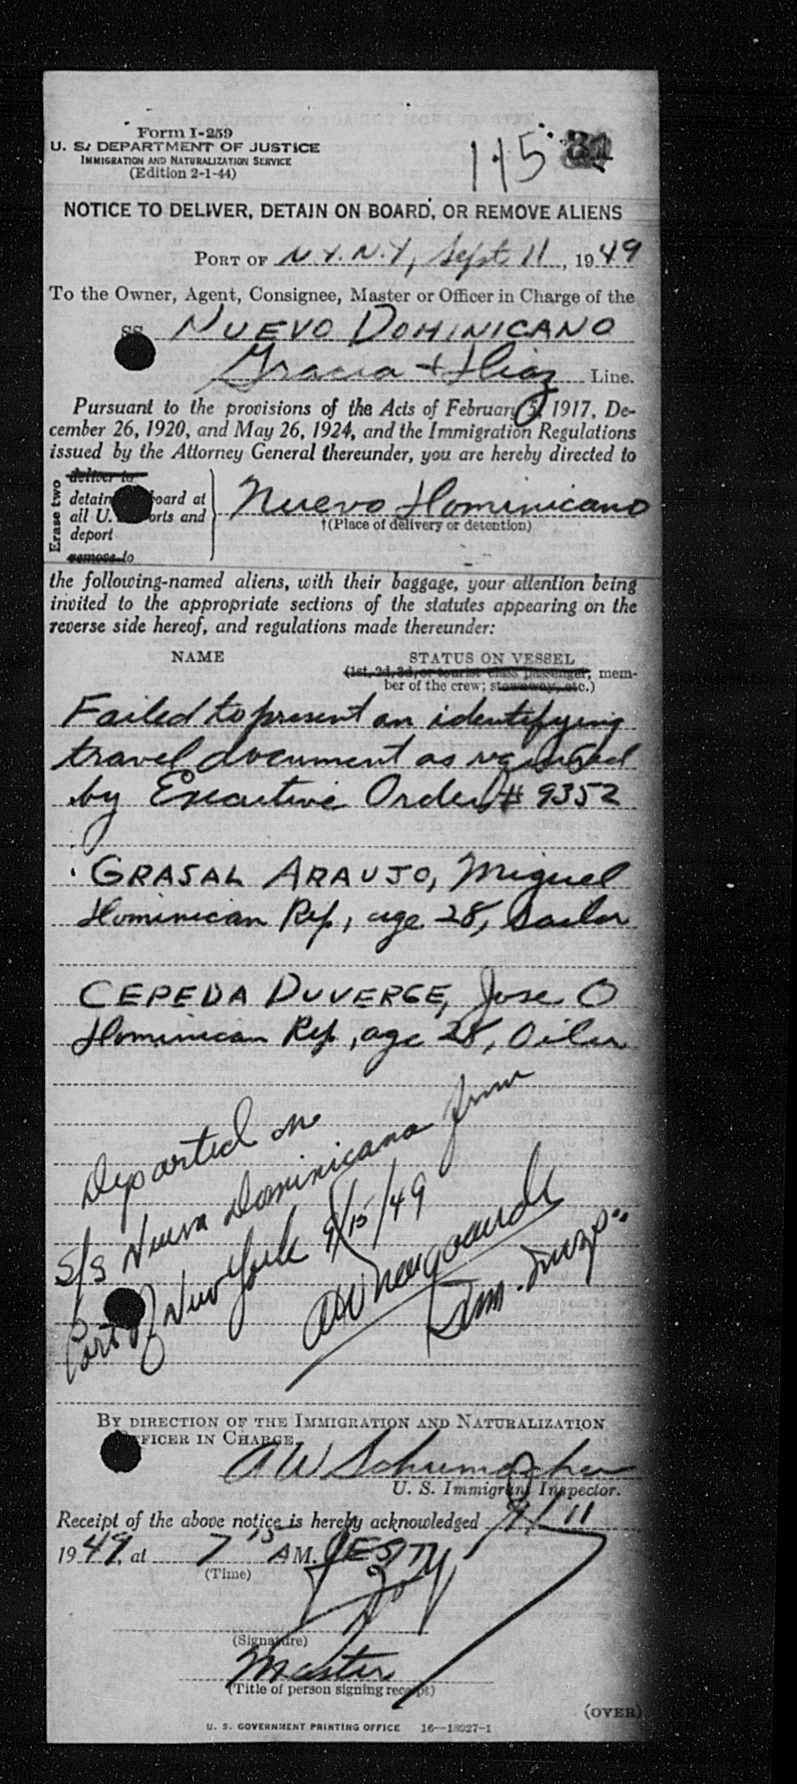 Form I-259
U. S. DEPARTMENT OF JUSTICE
IMMIGRATION AND NATURALIZATION SERVICE
(Edition 2-1-44)
115
NOTICE TO DELIVER, DETAIN ON BOARD, OR REMOVE ALIENS
PORT OF N.Y. N.Y, Sept 11, 1949
To the Owner, Agent, Consignee, Master or Officer in Charge of the
SS NUEVO DOMINICANO
Gracia + Diaz Line.
Pursuant to the provisions of the Acts of February 5, 1917, De-
cember 26, 1920, and May 26, 1924, and the Immigration Regulations
issued by the Attorney General thereunder, you are hereby directed to
Erase two
deliver to
detain board at
all U. orts and
deport
remove to
Nuevo Dominicano
†(Place of delivery or detention)
the following-named aliens, with their baggage, your attention being
invited to the appropriate sections of the statutes appearing on the
reverse side hereof, and regulations made thereunder:
NAME STATUS ON VESSEL
(1st, 2d, 3d, or tourist class passenger, mem-
ber of the crew; stowaway, etc.)
Failed to present an identifying
travel document as required
by Executive Order # 9352
GRASAL ARAUJO, Miguel
Dominican Rep, age 28, Sailor
CEPEDA DUVERGE, Jose O
Dominican Rep, age 28, Oiler
Departed on
S/S Nueva Dominicana from
Port of New York 9/15/49
BY DIRECTION OF THE IMMIGRATION AND NATURALIZATION
FFICER IN CHARGE
AW Schumacher
U. S. Immigrant Inspector.
Receipt of the above notice is hereby acknowledged 9/11
1949, at 7 15 A M.
(Time)
(Signature)
Master
(Title of person signing receipt)
(OVER)
U. S. GOVERNMENT PRINTING OFFICE 16—18927-1